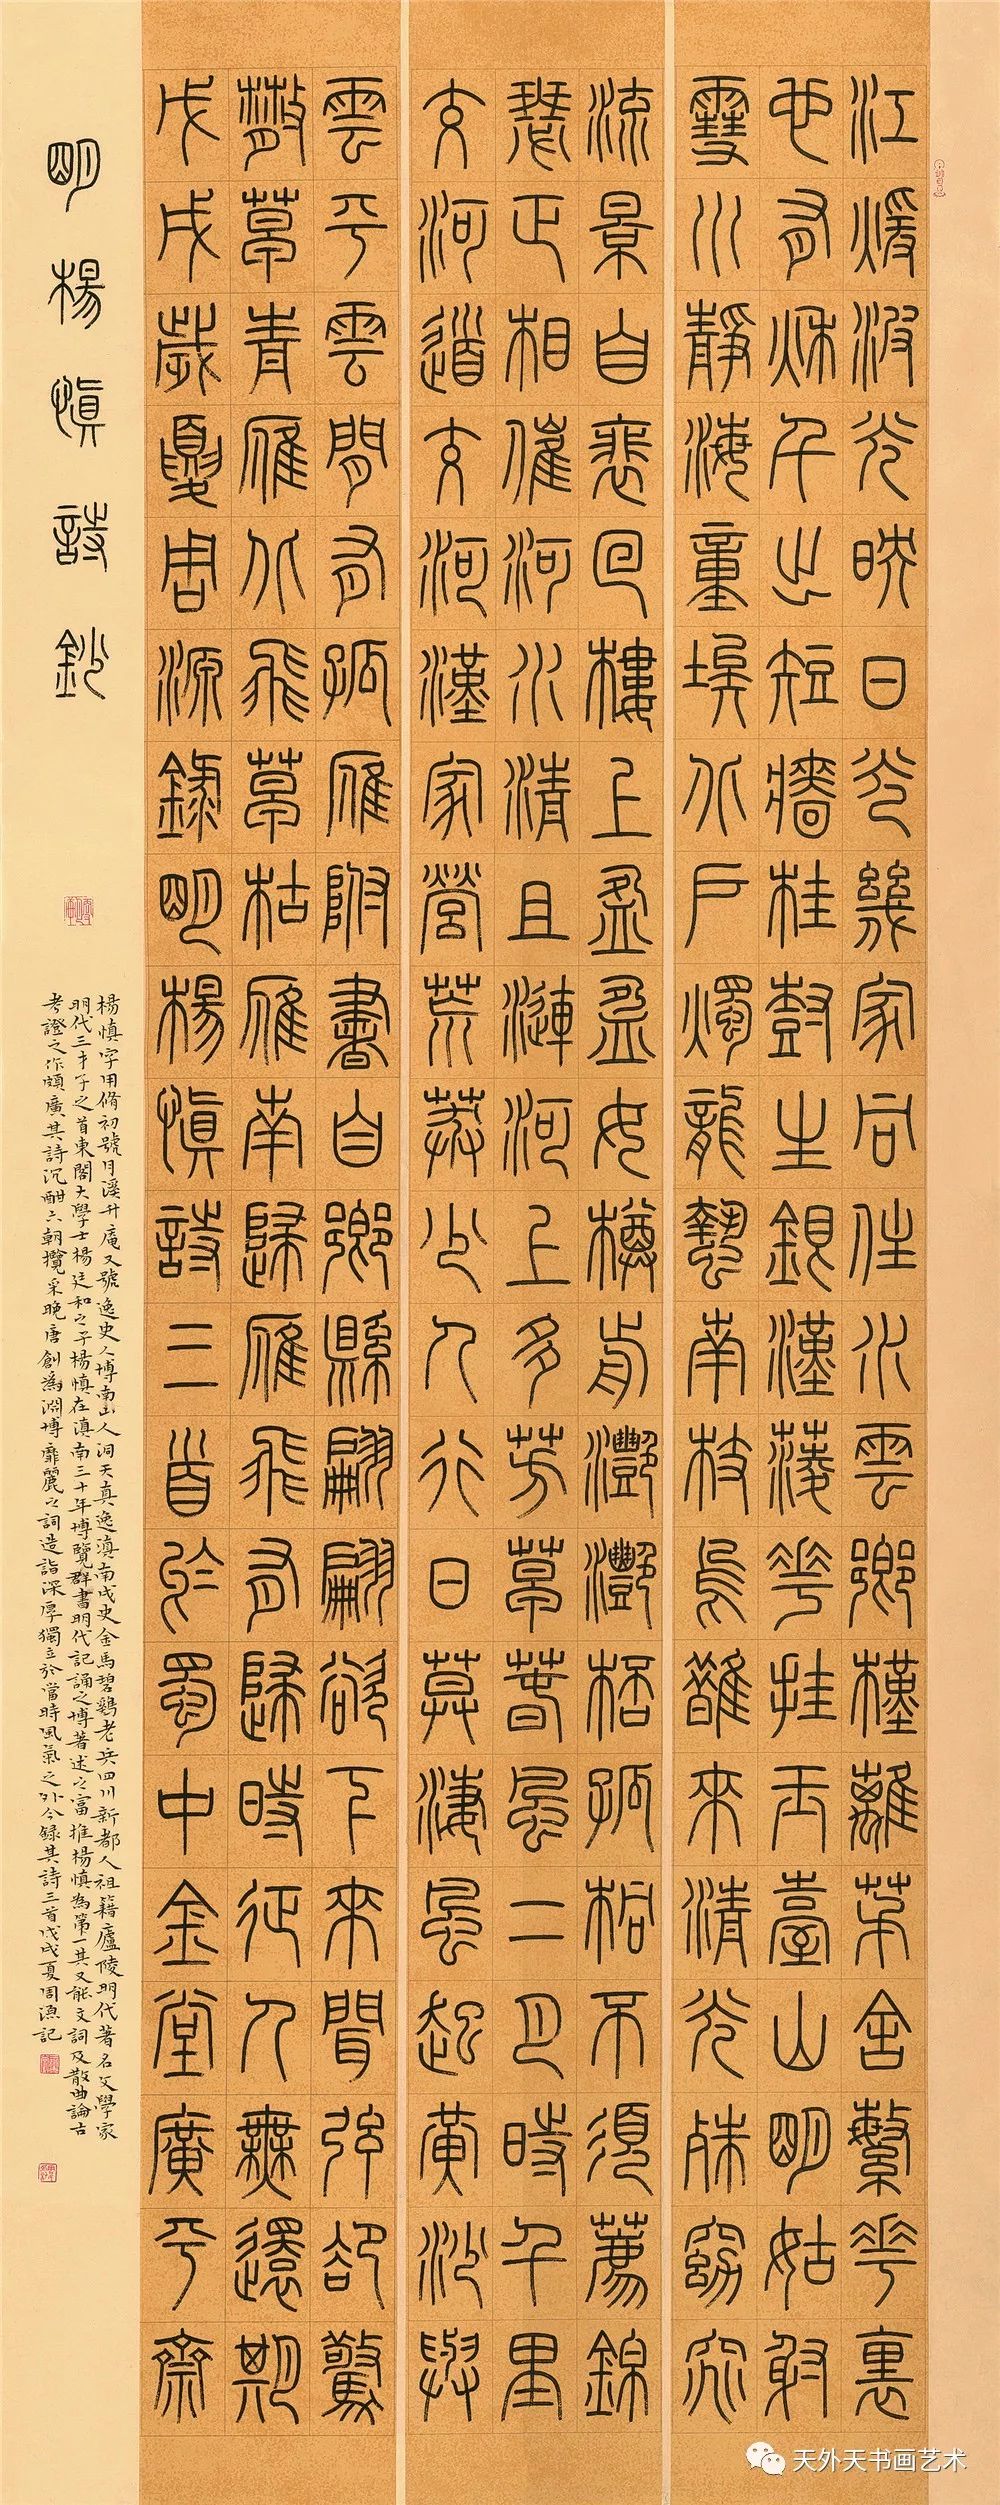 江煖波光映日光幾家同住水雲鄉槿籬茅舍繁花裏
也有秋千出短牆桂鼓生銀漢蓤花挂玉臺山明姑射
雪川靜海童埃北戶燭龍熱南枝烏鵲來清光殊窈窕
流景自裴回樓上盈盈女樽前灩灩桮孤桐不須薦錦
瑟正相催河水清且漣河上多芳草春風二月時千里
玄河道玄河漢家營荒莽少人行日莫淒風起黃沙與
雲平雲間有孤雁附書自鄉縣翩翩欲下來聞弦卻驚
散草青雁北飛草枯雁南歸雁飛有歸時征人無還期
戊戌歲夏周源錄明楊慎詩三首於蜀中金堂廣平齋
明楊慎詩鈔
楊慎字用脩初號月溪升庵又號逸史人博南山人洞天真逸滇南戍史金馬碧鷄老兵四川新都人祖籍廬陵明代著名文學家
明代三才子之首東閣大學士楊廷和之子楊慎在滇南三十年博覽群書明代記誦之博著述之富推楊慎為第一其又能文詞及散曲論古
考證之作頗廣其詩沉酣六朝攬采晚唐創為淵博靡麗之詞造詣深厚獨立於當時風氣之外今錄其詩三首戊戌夏周源記
天外天书画艺术